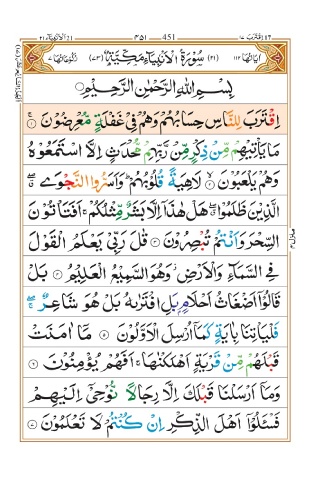 الانبيآء ٢١ ٤٥١ 451 اقترب ١٧
اٰيَاتُهَا ١١٢ (٢١) سُوْرَةُ الْاَنْۢبِيَآءِ مَكِّيَّةٌ (٧٣) رُكُوْعَاتُهَا ٧
بِسْمِ اللّٰهِ الرَّحْمٰنِ الرَّحِيْمِ
اِقْتَرَبَ لِلنَّاسِ حِسَابُهُمْ وَهُمْ فِيْ غَفْلَةٍ مُّعْرِضُوْنَ ۚ‏ ١
مَا يَاْتِيْهِمْ مِّنْ ذِكْرٍ مِّنْ رَّبِّهِمْ مُّحْدَثٍ اِلَّا اسْتَمَعُوْهُ
وَهُمْ يَلْعَبُوْنَ ۙ ٢ لَاهِيَةً قُلُوْبُهُمْ ؕ وَاَسَرُّوا النَّجْوَى ۖ
الَّذِيْنَ ظَلَمُوْا ۖ هَلْ هٰذَاۤ اِلَّا بَشَرٌ مِّثْلُكُمْ ۚ اَفَتَاْتُوْنَ
السِّحْرَ وَاَنْتُمْ تُبْصِرُوْنَ ٣ قٰلَ رَبِّيْ يَعْلَمُ الْقَوْلَ
فِي السَّمَآءِ وَالْاَرْضِ ؗ وَهُوَ السَّمِيْعُ الْعَلِيْمُ ٤ بَلْ
قَالُوْۤا اَضْغَاثُ اَحْلَامٍۭ بَلِ افْتَرٰىهُ بَلْ هُوَ شَاعِرٌ ۖۚ
فَلْيَاْتِنَا بِاٰيَةٍ كَمَاۤ اُرْسِلَ الْاَوَّلُوْنَ ٥ مَاۤ اٰمَنَتْ
قَبْلَهُمْ مِّنْ قَرْيَةٍ اَهْلَكْنٰهَا ۚ اَفَهُمْ يُؤْمِنُوْنَ ٦
وَمَاۤ اَرْسَلْنَا قَبْلَكَ اِلَّا رِجَالًا نُّوْحِيْۤ اِلَيْهِمْ
فَسْـَٔلُوْۤا اَهْلَ الذِّكْرِ اِنْ كُنْتُمْ لَا تَعْلَمُوْنَ ٧